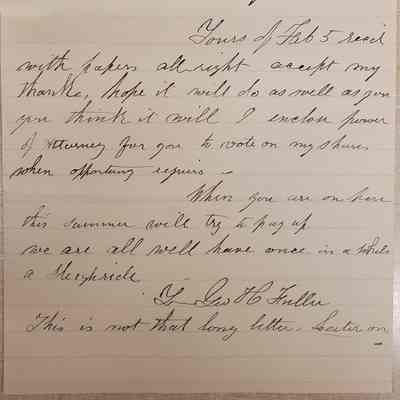 Yours of Feb 5 recd
with papers all right accept my
thanks, hope it will do as well as you
you think it will I enclose power
of Attorney for you to vote on my shares
when opportuny requires -
When you are on here
this summer will try to pay up
we are all well have once in a while
a Sleighride
Yr Geo H Fuller
This is not that long letter. Later on